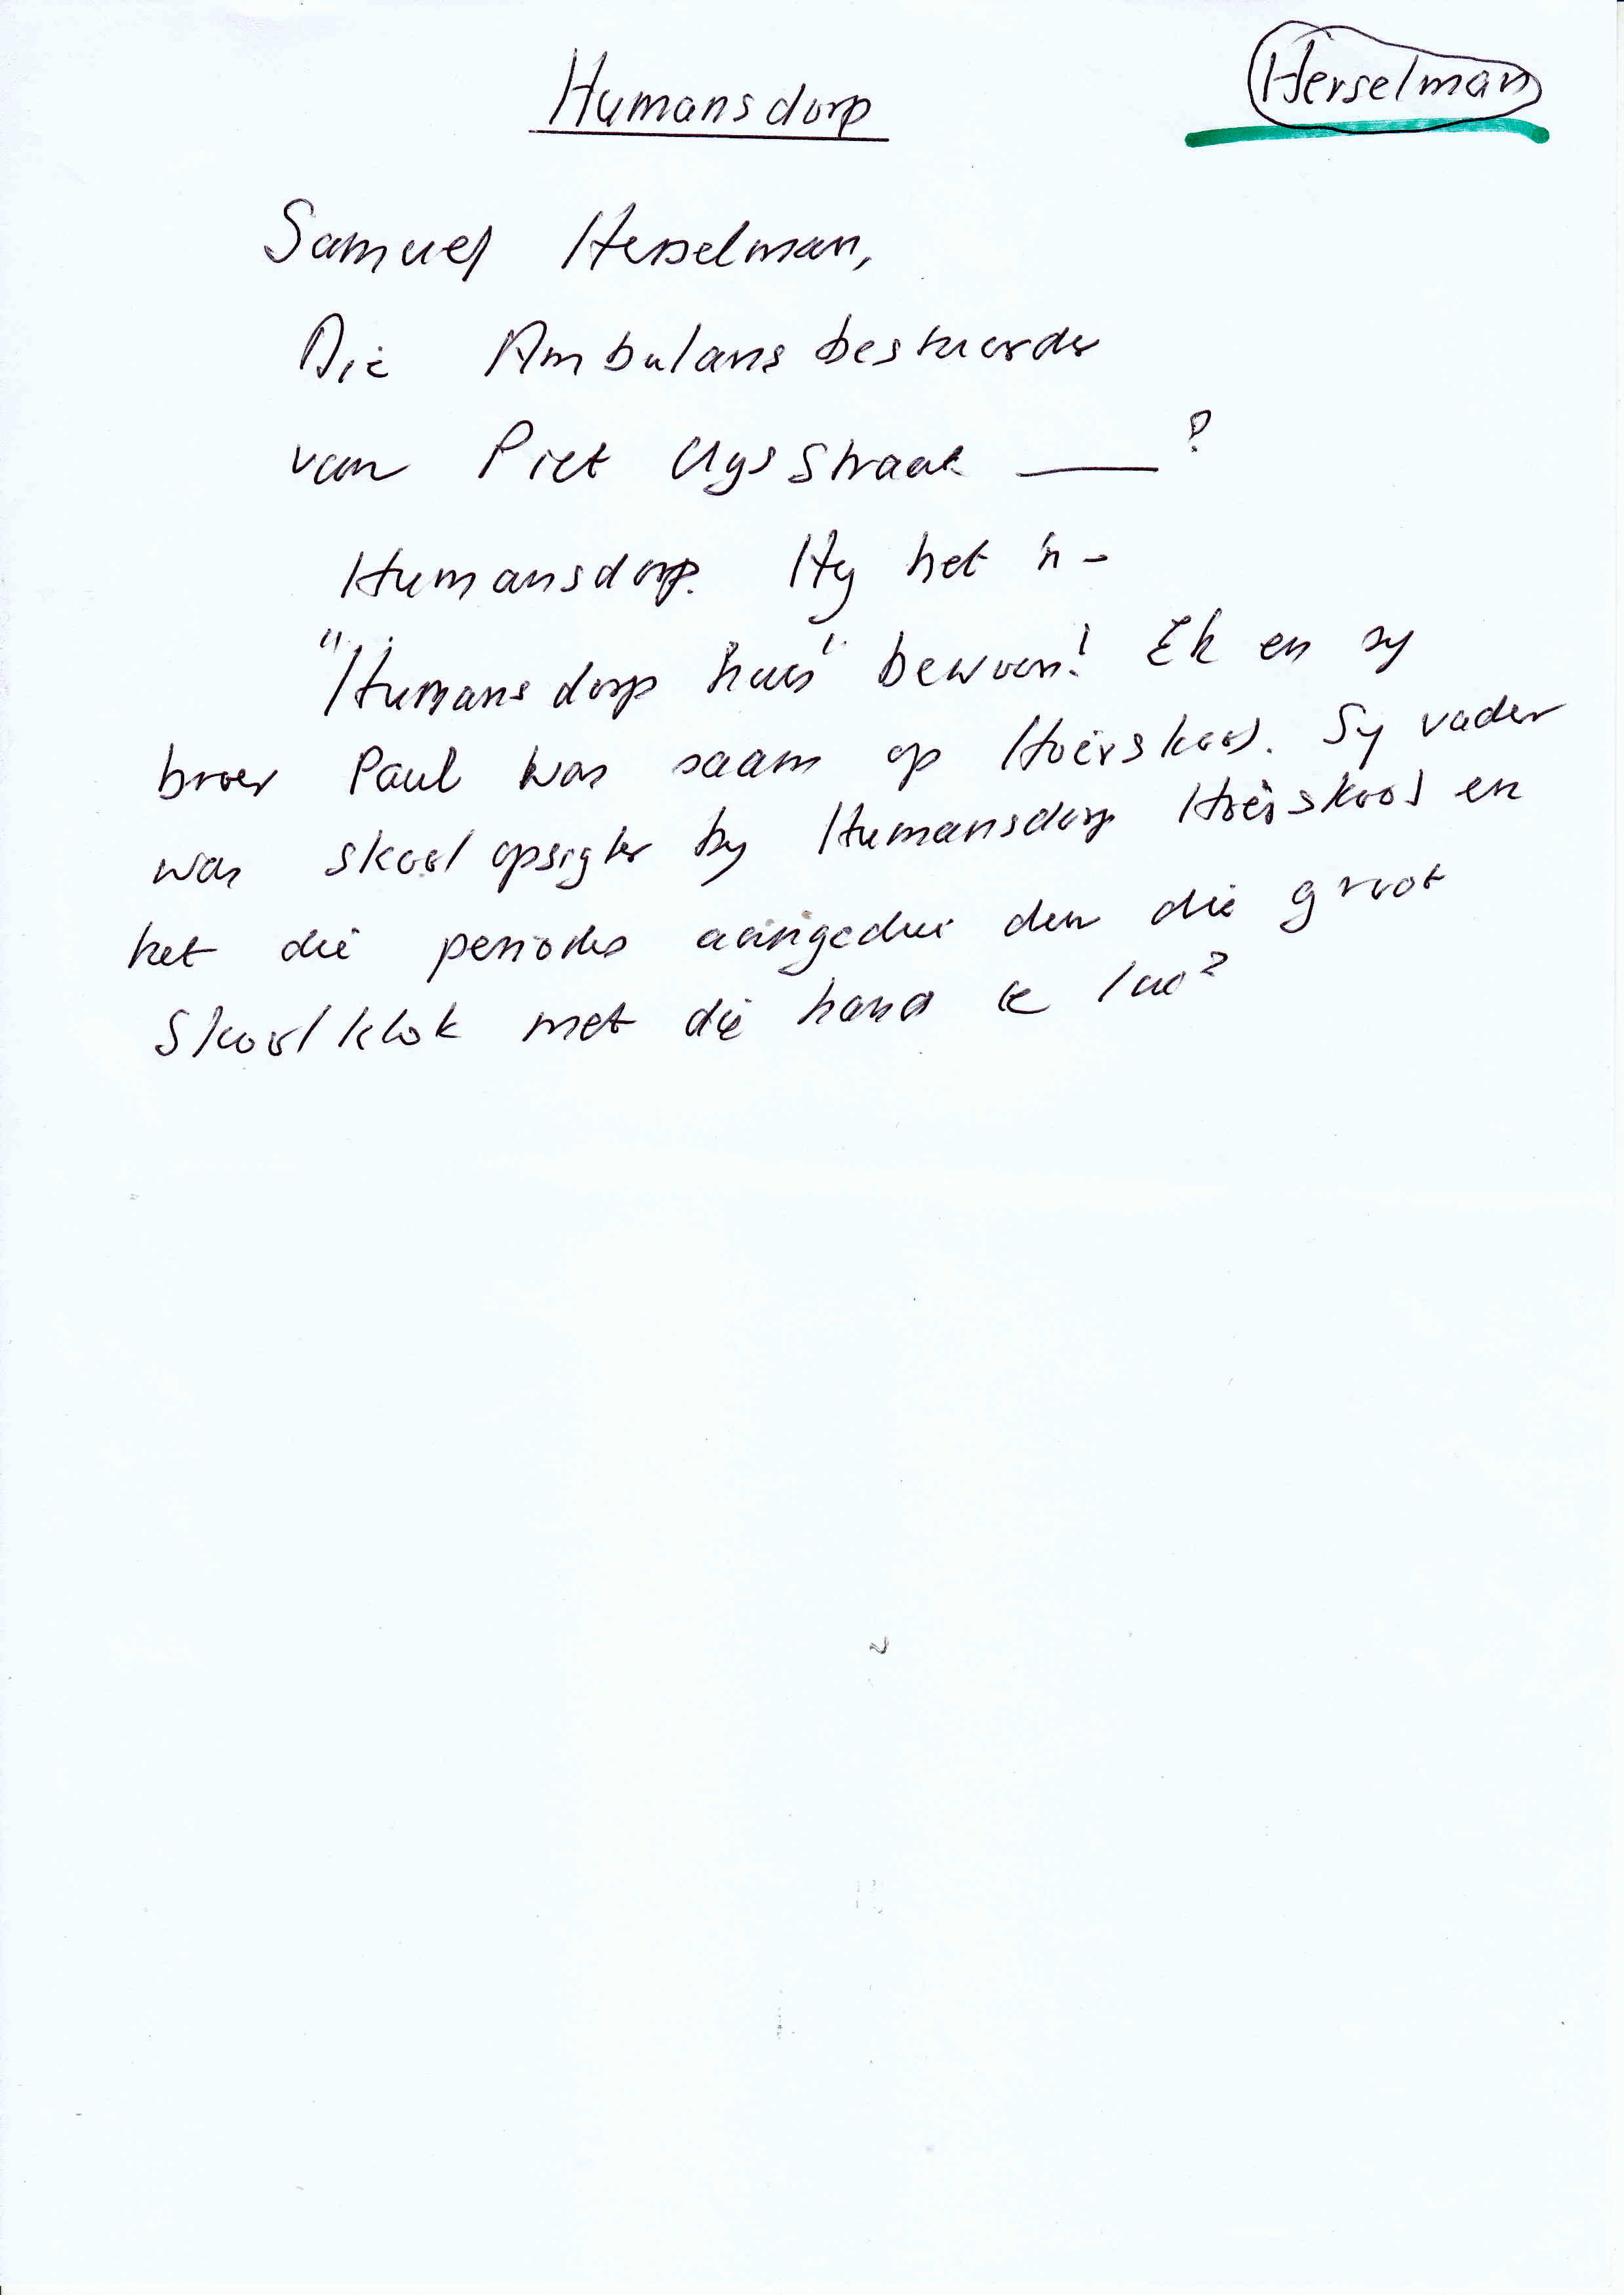 Humansdorp
Herselman
Samuel Herselman,
Die Ambulans bestuurder
van Piet Uys Straat ___ ?
Humansdorp. Hy het 'n -
"Humansdorp huis" bewoon! Ek en sy
broer Paul was saam op Hoërskool. Sy vader
was skool opsigter by Humansdorp Hoërskool en
het die periodes aangedui deur die groot
Skool klok met die hand te lui?